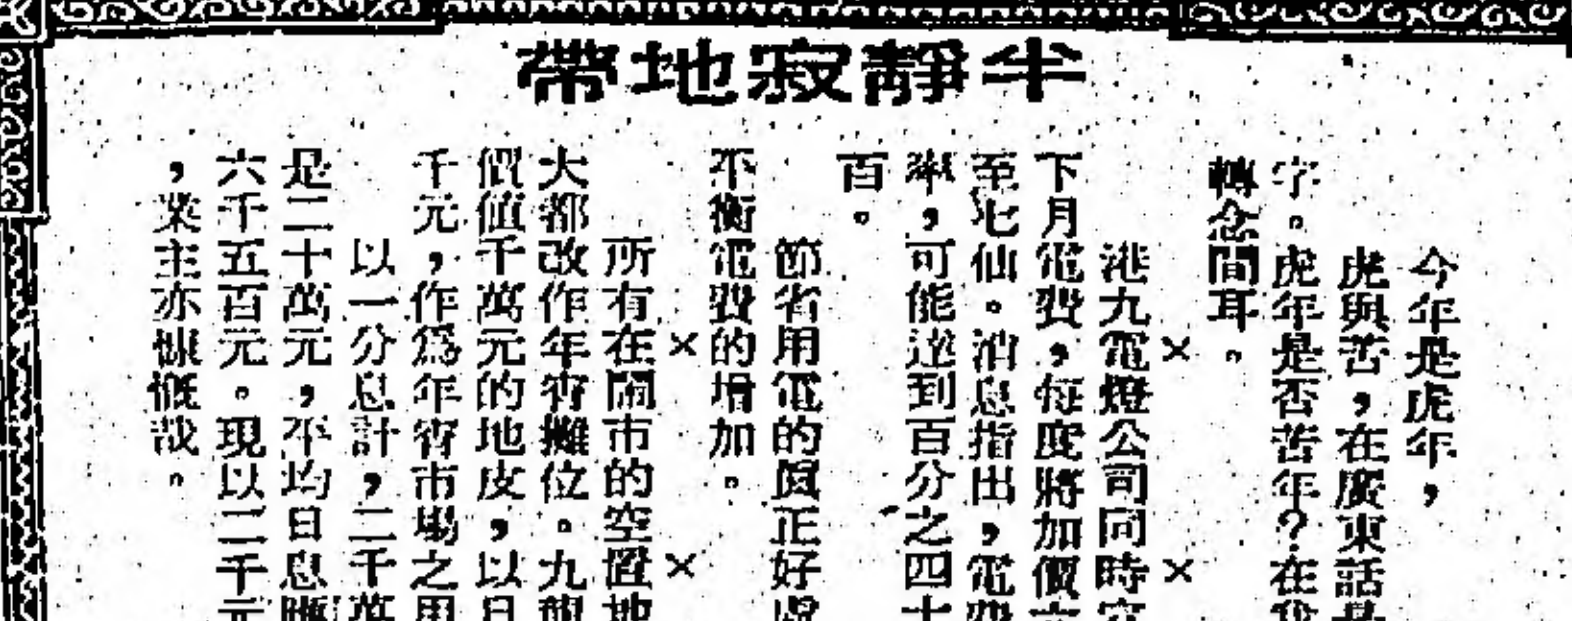 半靜寂地帶
今年是虎年，
虎與苦，在廣東話是
字。虎年是否苦年？在我
轉念間耳。
×　×
港九電燈公司同時宣
下月電費，每度將加價
至七仙。消息指出，電費
率，可能達到百分之四十
百。
節省用電的真正好處
不衡電費的增加。
×　×
所有在鬧市的空置地
大都改作年宵攤位。九龍
價值千萬元的地皮，以日
千元，作爲年宵市場之用
以一分息計，二千萬
是二十萬元，平均日息
六千五百元。現以二千元
，業主亦慷慨哉。